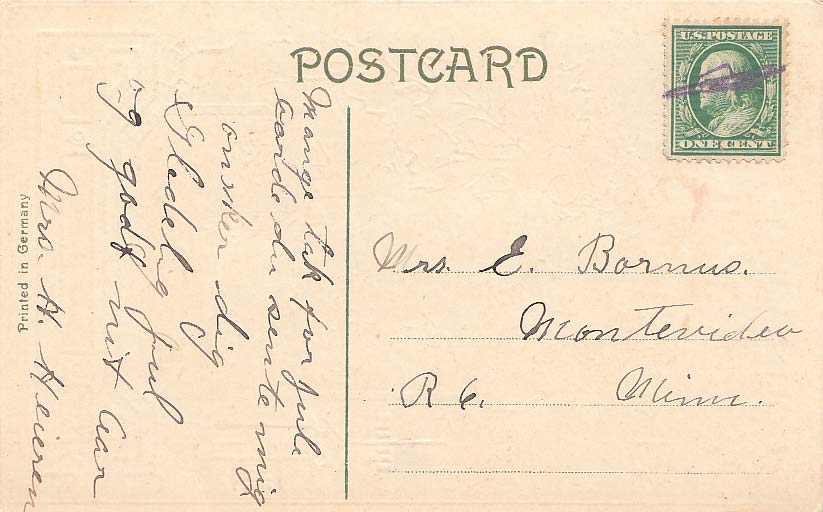 POSTCARD
U.S. POSTAGE
ONE CENT
Mange tak for jule
carde du sente mig
önsker dig
Gledelig Jul
og godt nit Aar
Mrs. H.
Printed in Germany
Mrs. E. Bornus.
Montevideo
R 6. Minn.